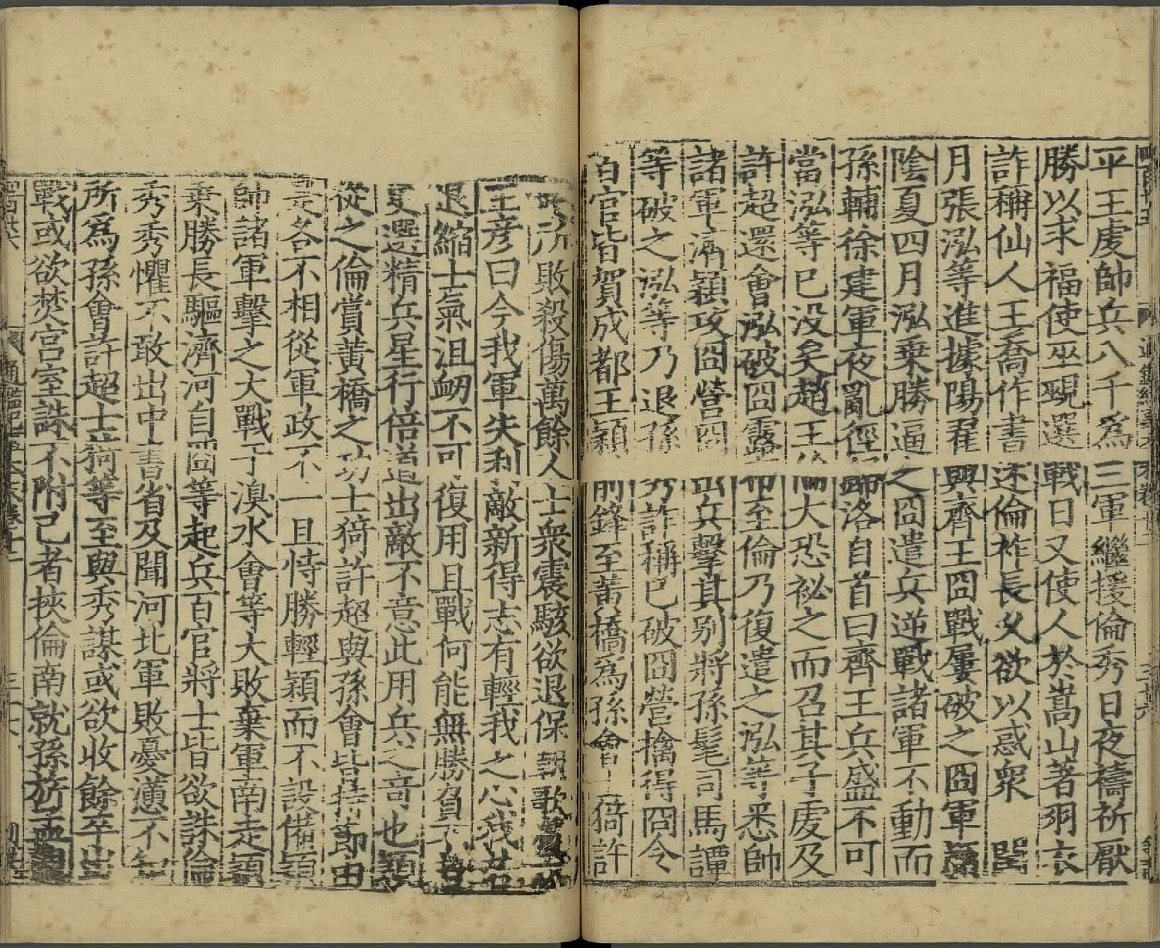 平王虔帥兵八千為三軍繼援倫秀日夜禱祈厭
勝以求福使巫覡選戰日又使人於嵩山著羽衣
詐稱仙人王喬作書述倫祚長久欲以惑眾 閏
月張泓等進據陽翟與齊王冏戰屢破之冏軍潁
陰夏四月泓乗勝逼之冏遣兵逆戰諸軍不動而
孫輔徐建軍夜亂徑歸洛自首曰齊王兵盛不可
當泓等已没矣趙王倫大恐祕之而召其子虔及
許超還會泓破冏露布至倫乃復遣之泓等悉帥
諸軍濟潁攻冏營冏出兵擊其別將孫髦司馬譚
等破之泓等乃退孫秀詐稱已破冏營擒得冏令
百官皆賀成都王穎前鋒至黃橋為孫會士猗許
所敗殺傷萬餘人士衆震駭欲退保朝歌
王彦曰今我軍失利敵新得志有輕我之心我若
退縮士氣沮衂不可復用且戰何能無勝負不
更選精兵星行倍道出敵不意此用兵之奇也穎
從之倫賞黃橋之功士猗許超與孫會皆持節由
是各不相從軍政不一且恃勝輕穎而不設備穎
帥諸軍擊之大戰于溴水會等大敗棄軍南走穎
乗勝長驅濟河自冏等起兵百官將士皆欲誅倫
秀秀懼不敢出中書省及聞河北軍敗憂懣不知
所為孫會許超士猗等至與秀謀或欲收餘卒出
戰或欲焚宫室誅不附己者挾倫南就孫旂孟觀